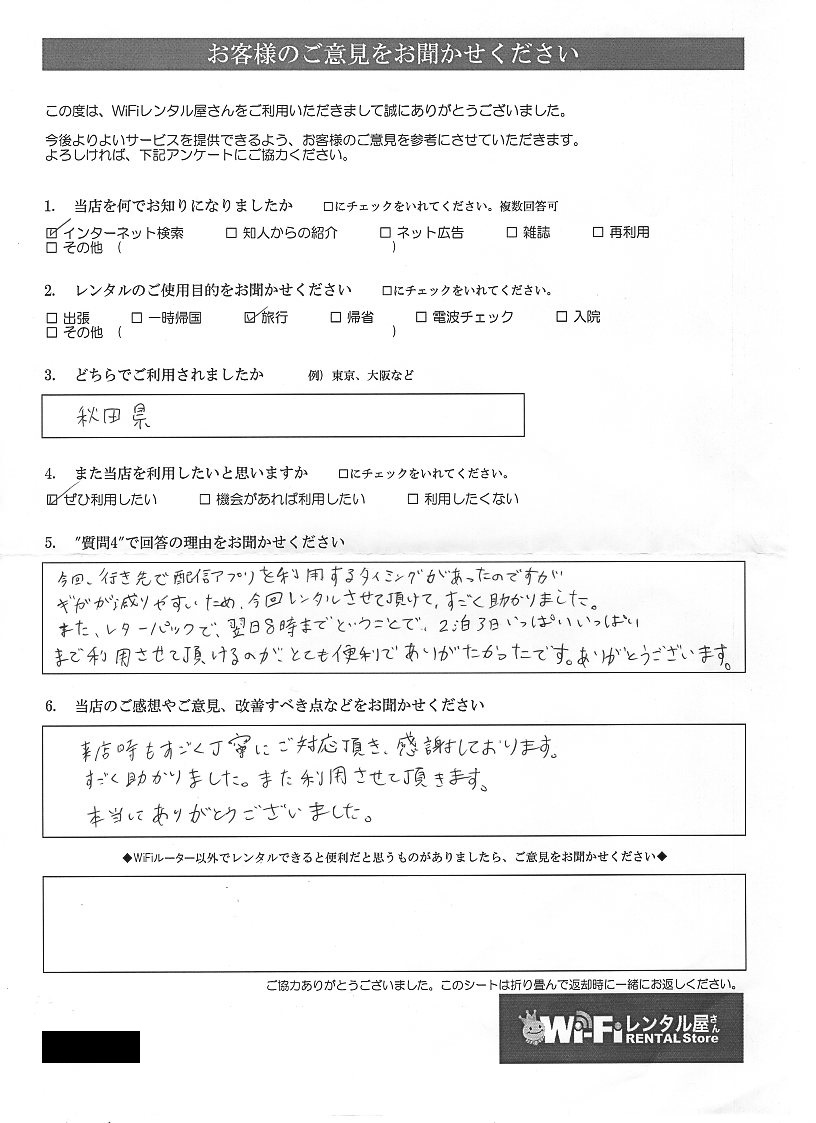 お客様のご意見をお聞かせください
この度は、WiFiレンタル屋さんをご利用いただきまして誠にありがとうございました。
今後よりよいサービスを提供できるよう、お客様のご意見を参考にさせていただきます。
よろしければ、下記アンケートにご協力ください。
1. 当店を何でお知りになりましたか □にチェックをいれてください。複数回答可
☑インターネット検索 □ 知人からの紹介 □ ネット広告 □ 雑誌 □ 再利用
□ その他 ( )
2. レンタルのご使用目的をお聞かせください □にチェックをいれてください。
□ 出張 □ 一時帰国 ☑旅行 □ 帰省 □ 電波チェック □ 入院
□ その他 ( )
3. どちらでご利用されましたか 例）東京、大阪など
秋田県
4. また当店を利用したいと思いますか □にチェックをいれてください。
☑ぜひ利用したい □ 機会があれば利用したい □ 利用したくない
5. "質問4"で回答の理由をお聞かせください
今回、行き先で配信アプリを利用するタイミングがあったのですが
ギガが減りやすいため、今回レンタルさせて頂けて、すごく助かりました。
また、レターパックで、翌日8時までということで、2泊3日いっぱいいっぱい
まで利用させて頂けるのがとても便利でありがたかったです。ありがとうございます。
6. 当店のご感想やご意見、改善すべき点などをお聞かせください
来店時もすごく丁寧にご対応頂き、感謝しております。
すごく助かりました。また利用させて頂きます。
本当にありがとうございました。
◆WiFiルーター以外でレンタルできると便利だと思うものがありましたら、ご意見をお聞かせください◆
ご協力ありがとうございました。このシートは折り畳んで返却時に一緒にお返しください。
Wi-Fiレンタル屋さん
RENTAL Store